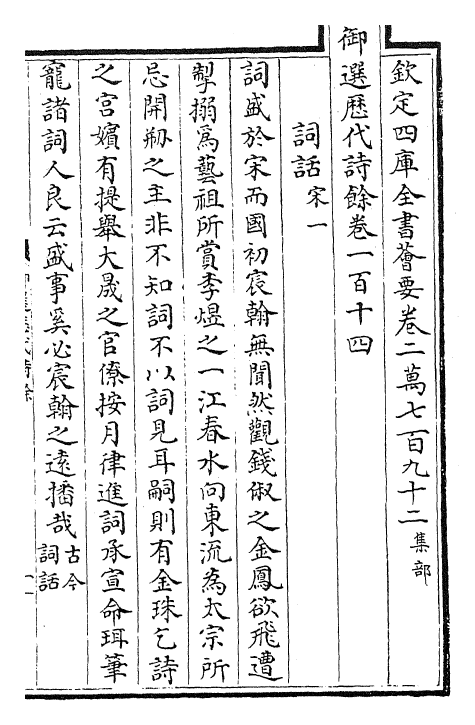 欽定四庫全書薈要卷二萬七百九十二集部
御選歷代詩餘卷一百十四
詞話宋一
詞盛於宋而國初宸翰無聞然觀錢俶之金鳳欲飛遭
掣搦爲藝祖所賞李煜之一江春水向東流為太宗所
忌開剏之主非不知詞不以詞見耳嗣則有金珠乞詩
之宮嬪有提舉大晟之官僚按月律進詞承宣命珥筆
寵諸詞人良云盛事奚必宸翰之遠播哉古今詞話